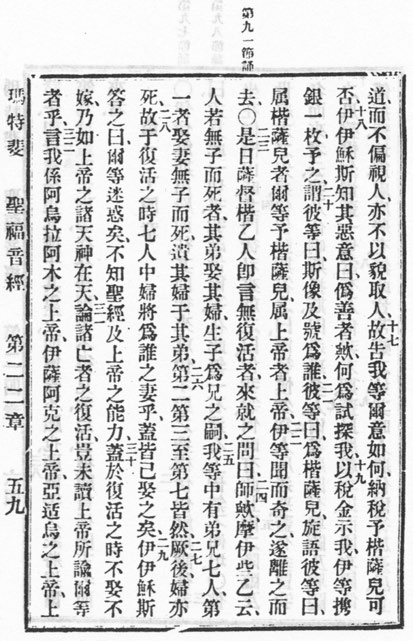 第九一節誦
道而不偏視人亦不以貌取人故告我等爾意如何納稅予楷薩兒可
否伊伊穌斯知其惡意曰僞善者歟何爲試探我以稅金示我伊等攜
銀一枚予之謂彼等曰斯像及號爲誰彼等曰爲楷薩兒旋語彼等曰
属楷薩兒者爾等予楷薩兒属上帝者上帝伊等聞而奇之遂離之而
去〇是日薩督楷乙人卽言無復活者來就之問曰師歟摩伊些乙云
人若無子而死者其弟娶其婦生子爲兄之嗣我等中有弟兄七人第
一者娶妻無子而死遺其婦于其弟第二第三至第七皆然厥後婦亦
死故于復活之時七人中婦將爲誰之妻乎蓋皆已娶之矣伊伊穌斯
答之曰爾等迷惑矣不知聖經及上帝之能力蓋於復活之時不娶不
嫁乃如上帝之諸天神在天論諸亡者之復活豈未讀上帝所諭爾等
者乎言我係阿烏拉阿木之上帝伊薩阿克之上帝亞适烏之上帝上
十七
十八
十九
二十
二一
二二
二三
二四
二五
二六
二七
二八
二九
三十
三一
三二
瑪特斐 聖福音經 第二二章 五九